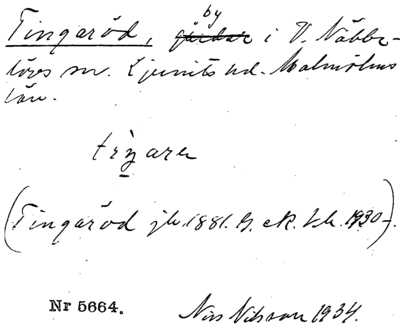 Tingaröd, by gårdar i V. Nöbbe-
lövs sn. Ljunits hd. Malmöhus
län.
tiŋarer
(Tingaröd jb. 1881. G. ek. bl. 1930-).
Nr 5664. Nils Nilsson 1934.